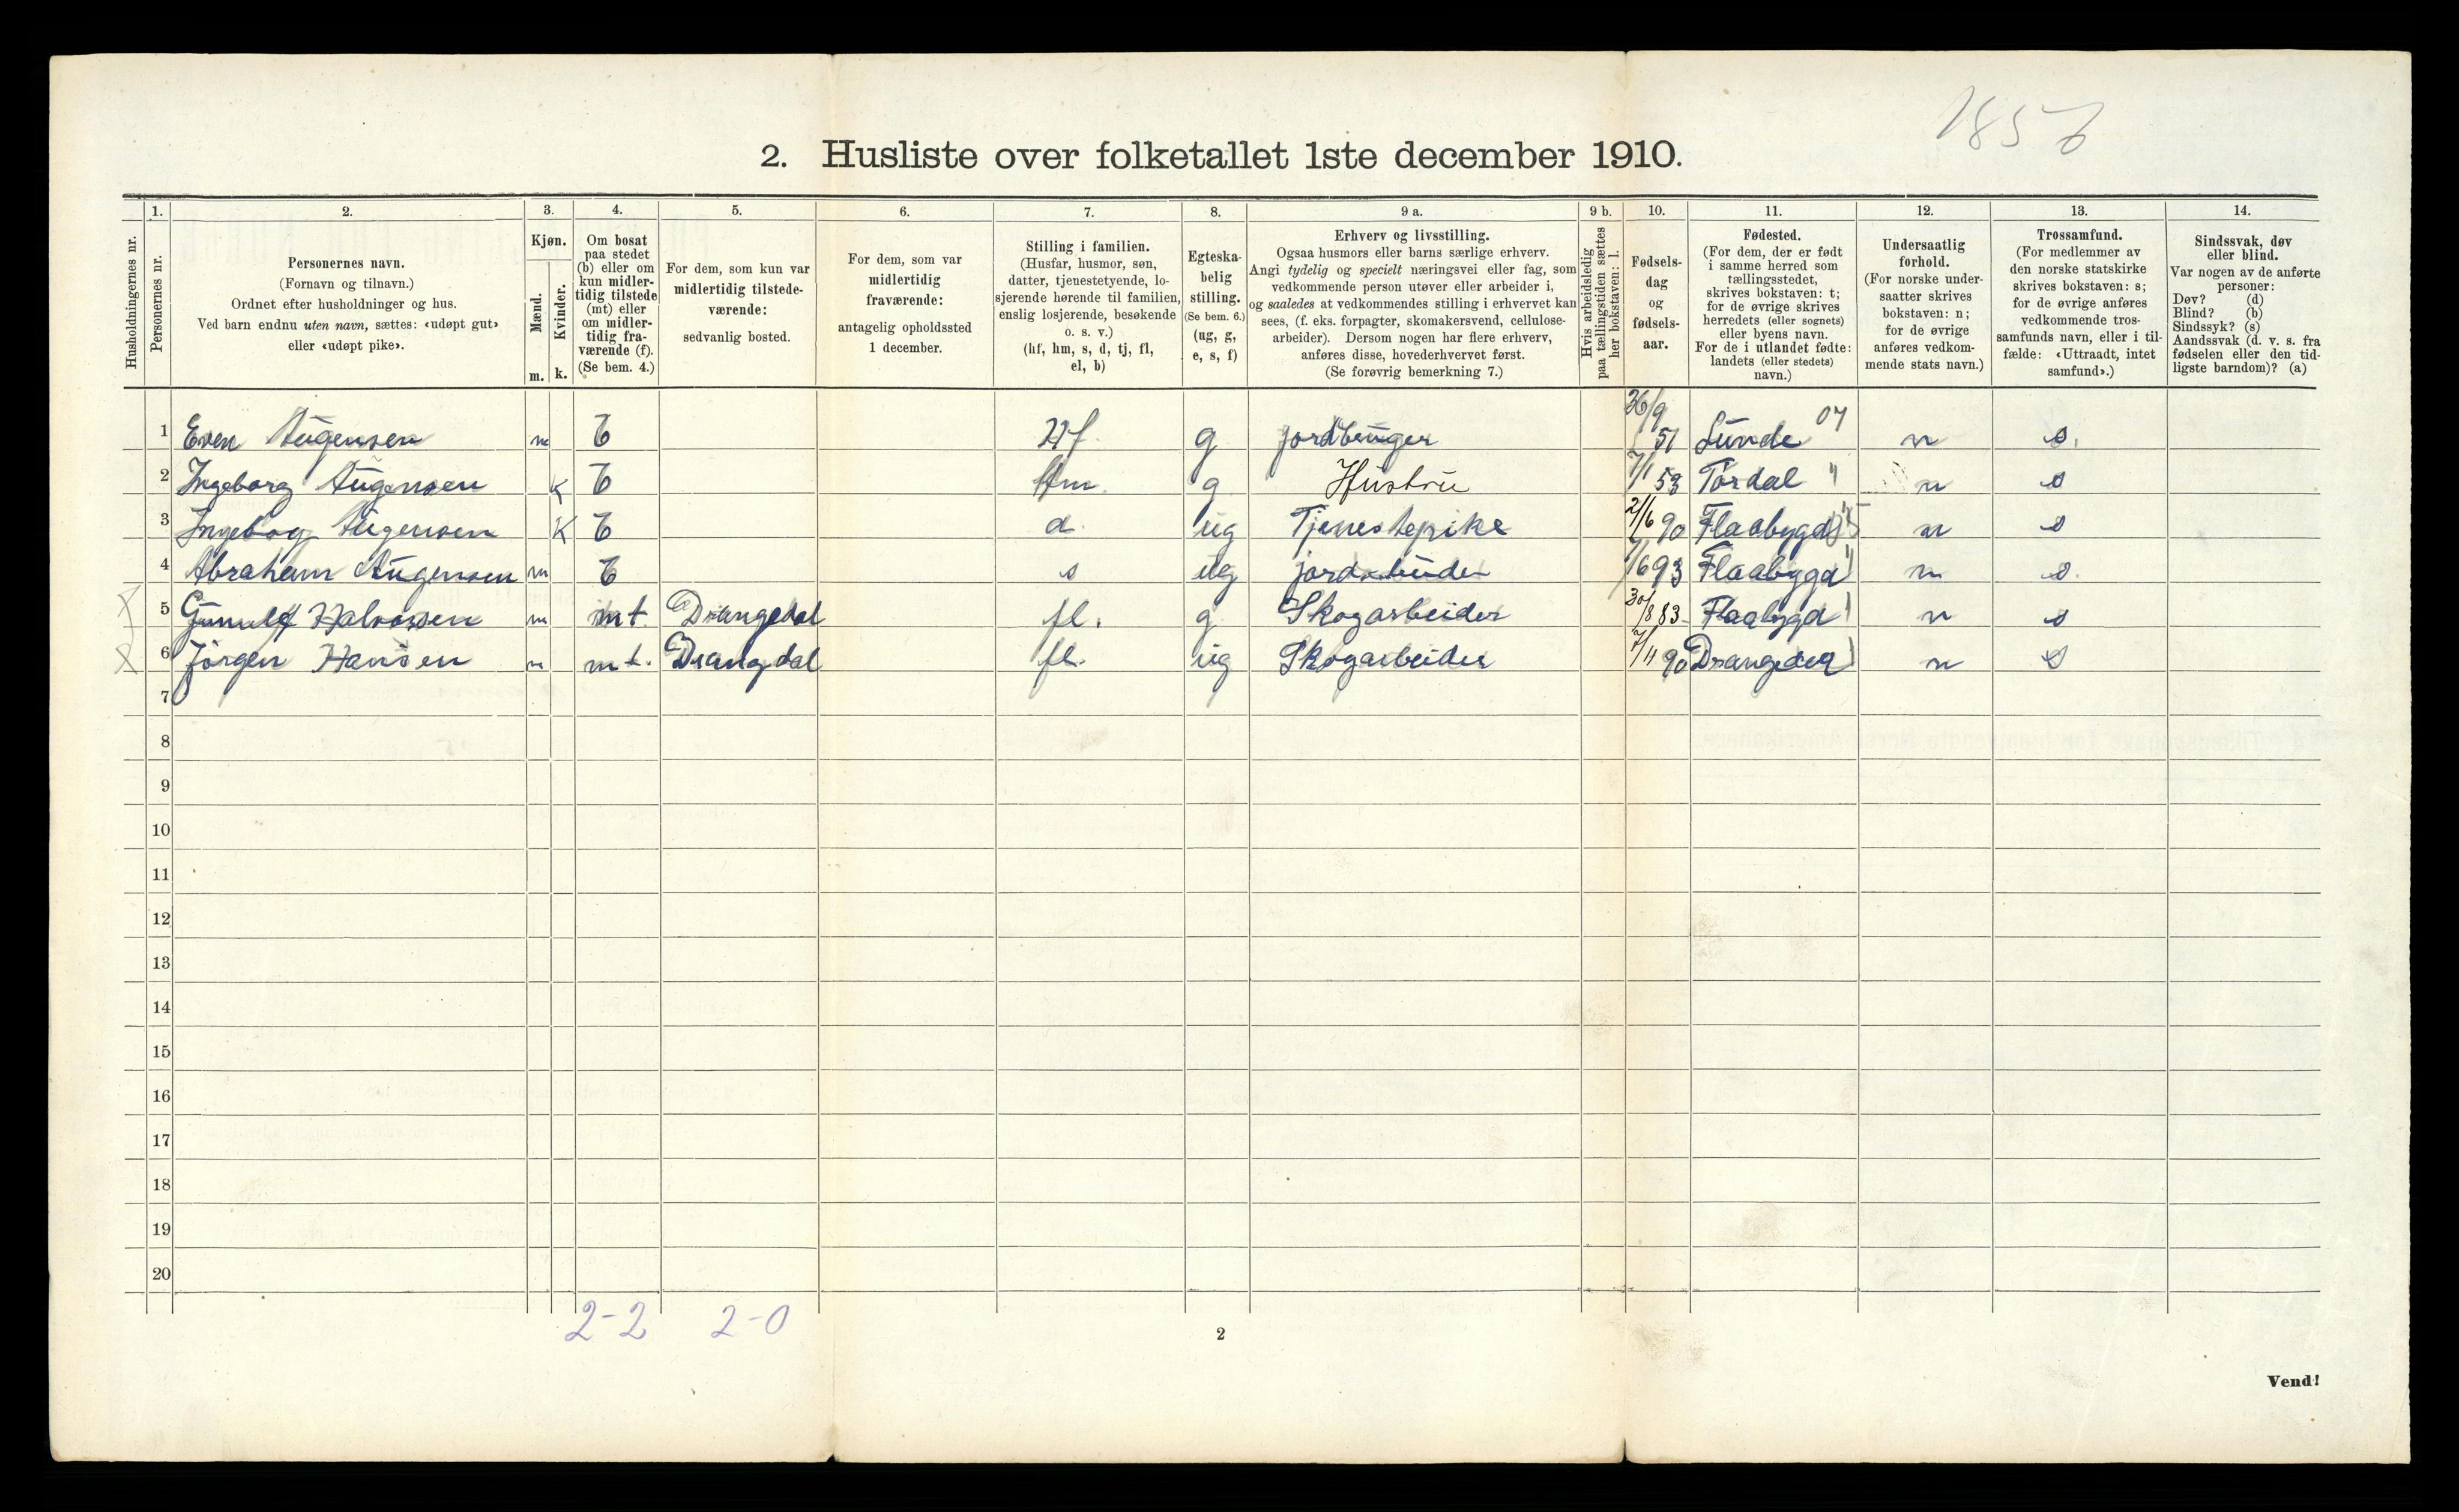 185
2. Husliste over folketallet 1ste december 1910.
1. 2. 3. 4. 5. 6. 7. 8. 9 a. 9 b. 10. 11. 12. 13. 14.
Husholdningernes nr.
Personernes nr.
Personernes navn.
(Fornavn og tilnavn.)
Ordnet efter husholdninger og hus.
Ved barn endnu uten navn, sættes: «udøpt gut»
eller «udøpt pike».
Kjøn.
Mænd.
m.
Kvinder.
k.
Om bosat
paa stedet
(b) eller om
kun midler-
tidig tilstede
(mt) eller
om midler-
tidig fra-
værende (f).
(Se bem. 4.)
For dem, som kun var
midlertidig tilstede-
værende:
sedvanlig bosted.
For dem, som var
midlertidig
fraværende:
antagelig opholdssted
1 december.
Stilling i familien.
(Husfar, husmor, søn,
datter, tjenestetyende, lo-
sjerende hørende til familien,
enslig losjerende, besøkende
o. s. v.)
(hf, hm, s, d, tj, fl,
el, b)
Egteska-
belig
stilling.
(Se bem. 6.)
(ug, g,
e, s, f)
Erhverv og livsstilling.
Ogsaa husmors eller barns særlige erhverv.
Angi tydelig og specielt næringsvei eller fag, som
vedkommende person utøver eller arbeider i,
og saaledes at vedkommendes stilling i erhvervet kan
sees, (f. eks. forpagter, skomakersvend, cellulose-
arbeider). Dersom nogen har flere erhverv,
anføres disse, hovederhvervet først.
(Se forøvrig bemerkning 7.)
Hvis arbeidsledig
paa tællingstiden sættes
her bokstaven: l.
Fødsels-
dag
og
fødsels-
aar.
Fødested.
(For dem, der er født
i samme herred som
tællingsstedet,
skrives bokstaven: t;
for de øvrige skrives
herredets (eller sognets)
eller byens navn.
For de i utlandet fødte:
landets (eller stedets)
navn.)
Undersaatlig
forhold.
(For norske under-
saatter skrives
bokstaven: n;
for de øvrige
anføres vedkom-
mende stats navn.)
Trossamfund.
(For medlemmer av
den norske statskirke
skrives bokstaven: s;
for de øvrige anføres
vedkommende tros-
samfunds navn, eller i til-
fælde: «Uttraadt, intet
samfund».)
Sindssvak, døv
eller blind.
Var nogen av de anførte
personer:
Døv? (d)
Blind? (b)
Sindssyk? (s)
Aandssvak (d. v. s. fra
fødselen eller den tid-
ligste barndom)? (a)
1 Even Augensen m b Hf. g 51 Lunde 07 n s.
2 Ingeborg Augensen k b Hm. g Hustru 7/1 53 Tørdal " n s
3 Ingebog Augensen K b d. ug Tjenestepike 2/6 90 Flaabygd n s
4 Abraham Augensen m b s ug 93 Flaabygd " n s.
5 Halvorsen m mt. Drangedal fl. g Skogarbeider 30/8 83 Flaabygd n s
6 Jörgen Hansen m mt. Drangdal fl. ug Skogarbeider 7/11 90 n s
7
8
9
10
11
12
13
14
15
16
17
18
19
20
2-2 2-0
2
Vend!